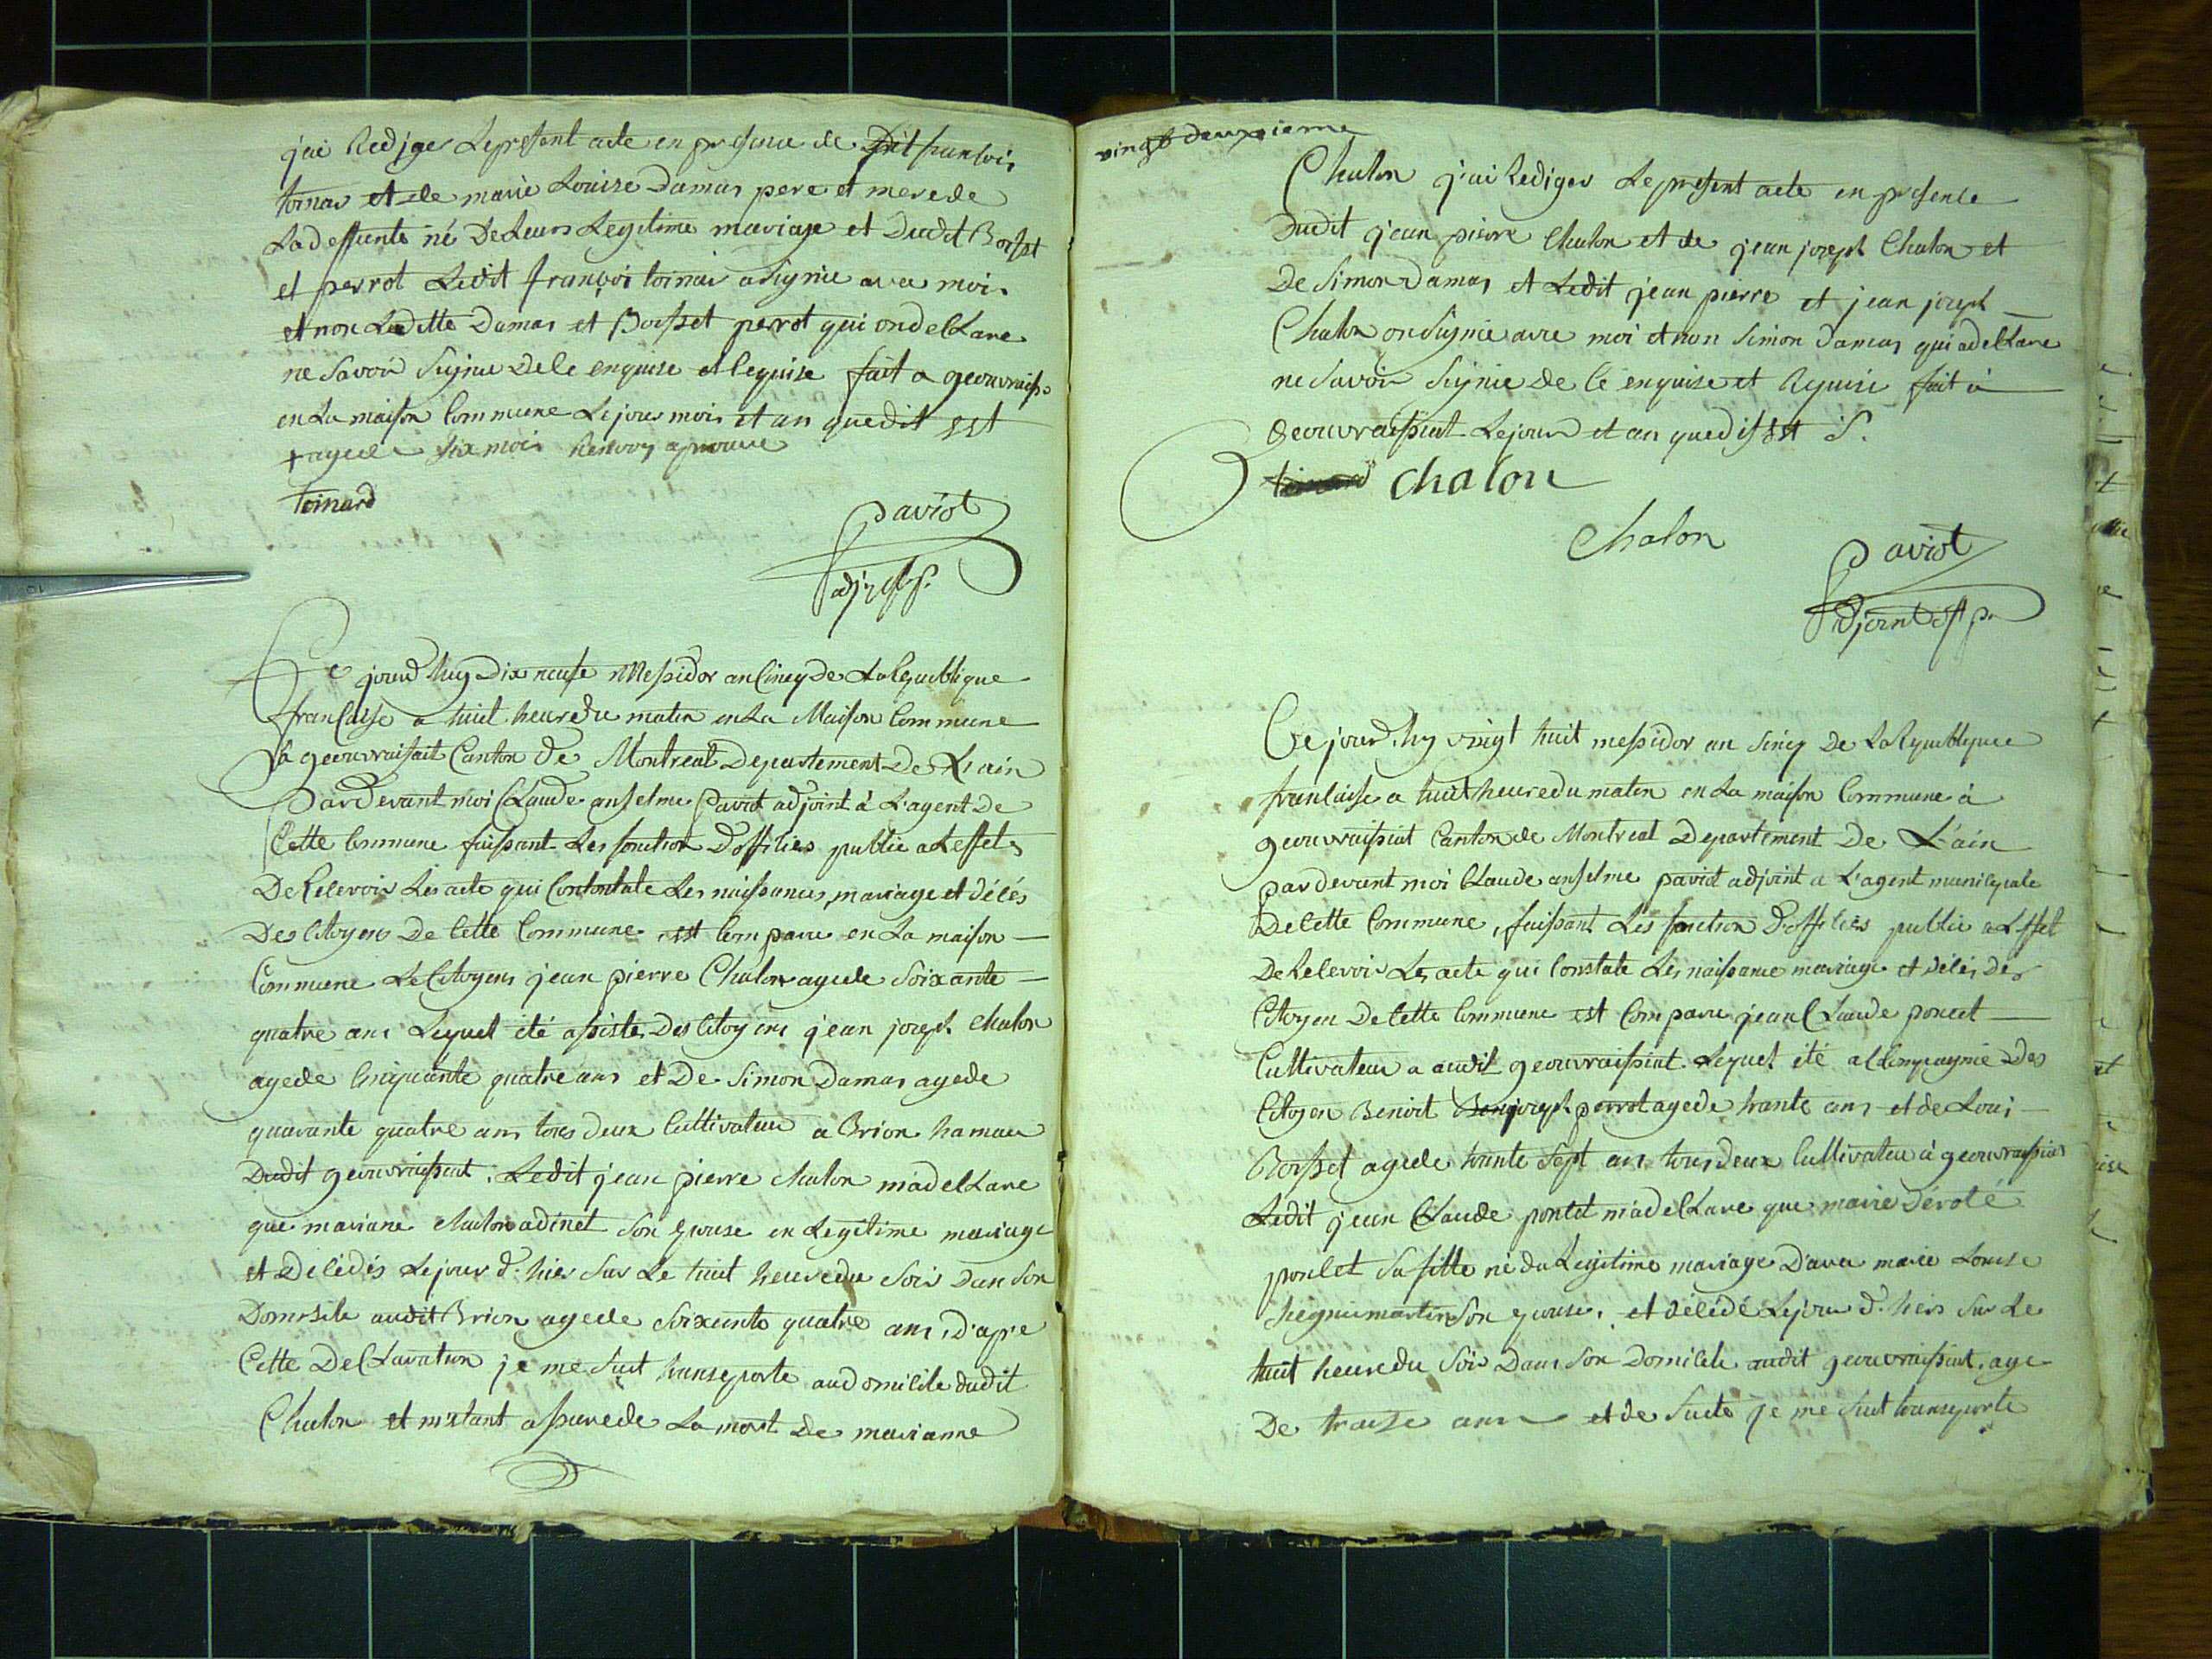 j'ai Rediger Le present acte en presence de Dit francois
toinar et de marie Louise Damas pere et mere de
La deffunte né De Leurs Legitime mariage et Dudit Boisset
et perrot Ledit françois toinar a signie avec moi
et non Laditte Damas et Boisset perrot qui on declare
ne savoir signie de ce enquise et Requise fait a geouvraiss.
en La maison Commune Le jour mois et an que dit est
+ agee de six mois Renvoy aprouve
Toinard
Paviot
Ce jourd'huy Dix neufe Messidor an Cinq De La Republique
francaise a huit heure du matin en La Maison Commune
a geouvraisait Canton de Montreal Departement De L'ain
Pardevant moi Claude anselme Paviot adjoint à L'agent De
Cette Commune faissant Les fonction D'offilies public a L'effet
De Recevoir Les acte qui Contontate Les naissances, mariage et décés
Des Citoyens De Cette Commune est Comparu en La maison
Commune Le Citoyens jean pierre Chalon agee de soixante
quatre ans Lequel été assisté Des Citoyens jean joseph chalon
agee de Cinquante quatre ans et De Simon Damas age de
quarante quatre ans tous deux Cultivateur a Brion hamau
Dudit geouvraissiat. Ledit jean pierre chalon m'a declare
que mariane chalon adinet son epouse en Legitime mariage
et décédés Le jour d'hier sur Le huit heure du soir dan son
Domisile audit Brion agee de soixante quatre ans, d'apre
Cette Declaration je me suit transporte au domicile dudit
Chalon et m'etant assure de La mort de marianne
vingt deuxieme
Chalon j'ai Rediger Le present acte en presence
Dudit jean pierre Chalon et de jean joseph Chalon et
De Simon Damas et Ledit jean pierre et jean joseph
Chalon on signie avec moi et non Simon Damas qui a declare
ne savoir signie de ce enquise et Requise fait à
geouvraissiat Le jour et an que dit est P.
chalon
Chalon
Paviot
adjoint
Ce jourd'hy vingt huit messidor an Sinq De La Republique
francaise a huit heure du matin en La maison Commune à
geouvraissiat Canton de Montreal Departement De L'ain
par devant moi Claude anselme paviot adjoint a L'agent municipale
De Cette Commune, faissant Les fonction D'offities public a L'effet
De Recevoir Les acte qui Constate Les naissance mariage et décés des
Citoyen De Cette Commune est Comparu jean Claude poncet
Cultivateur a audit geouvraissiat Lequel été a Compagnie Des
Citoyen Benoit perrot age de trante ans et de Loui
Boisset agee de trante sept ans tous deux Cultivateur à geouvraissiat
Ledit jean Claude poncet m'a declare que marie déroté
poncet sa fille né du Legitime mariage D'avec marie Louise
martin son epouse. et décédé Le jour d'hier sur Le
huit heure du soir Dans son Domicile audit geouvraissiat. age
De traize ans et de suite je me suit transporte